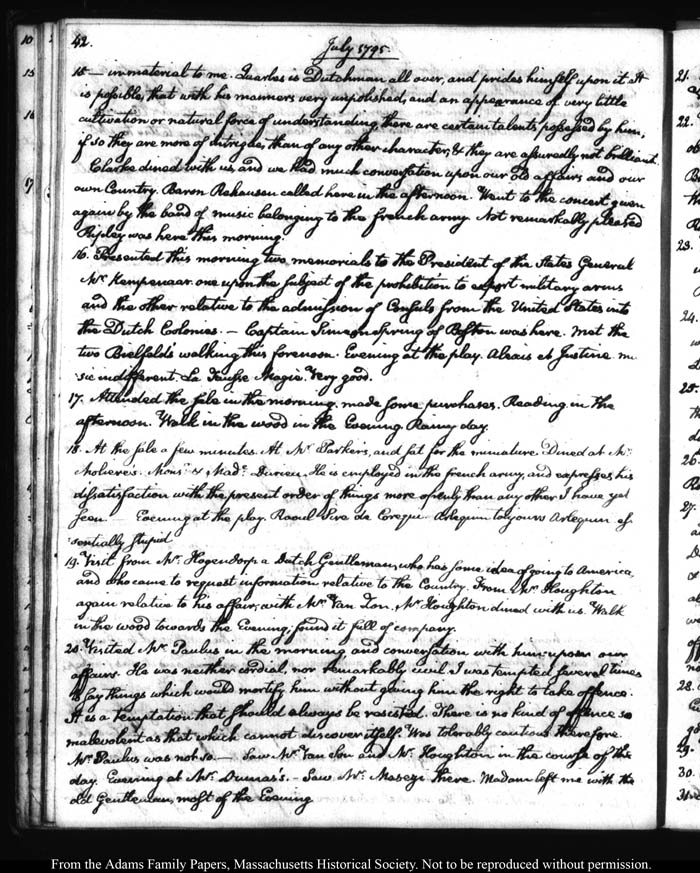 42.
July 1795.
15 — immaterial to me. Quarles is Dutchman all over, and prides himself upon it. It
is possible that with his manners very unpolished, and an appearance of very little
cultivation or natural force of understanding, there are certain talents possessed by him,
if so they are more of intrigue, than of any other character, & they are assuredly not brilliant.
Clarke dined with us, and we had much conversation upon our old affairs and our
own Country. Baron Rehausen called here in the afternoon. Went to the concert given
again by the band of music belonging to the french army. Not remarkably pleased
Ripley was here this morning.
16. Presented this morning two memorials to the President of the States General
Mr. Kempenaar. one upon the subject of the prohibition to export military arms
and the other relative to the admission of Consuls from the United States into
the Dutch Colonies. — Captain Simeon Spring of Boston was here. Met the
two Bielfeld's walking this forenoon. Evening at the play. Alexis et Justine. mu
sic indifferent. La Fausse Magie. Very good.
17. Attended the sale in the morning. made some purchases. Reading in the
afternoon. Walk in the wood in the Evening. Rainy day.
18. At the sale a few minutes. At Mr. Parkers, and sat for the miniature. Dined at Mr.
Moliere's. Monsr. & Made. He is employed in the french army, and expresses his
dissatisfaction with the present order of things more openly than any other I have yet
seen. — Evening at the play. Raoul Sire de Crequi. Arlequin toujours Arlequin es
sentially stupid
19. Visit from Mr. Hogendorp a Dutch Gentleman, who has some idea of going to America,
and who came to request information relative to the Country. From Mr. Houghton
again relative to his affair, with Mr. Van Son. Mr. Houghton dined with us. Walk
in the wood towards the Evening, found it full of company.
20. Visited Mr. Paulus in the morning and conversation with him upon our
affairs. He was neither cordial, nor remarkably civil. I was tempted several times
to say things which would mortify him without giving him the right to take offence.
It is a temptation that should always be resisted. There is no kind of offence so
malevolent as that which cannot discover itself. Was tolerably cautious therefore.
Mr. Paulus was not so. — Saw Mr. Van Son and Mr. Houghton in the course of the
day. Evening at Mr. Dumas's. — Saw Mr. there. Madam left me with the
old Gentleman, most of the Evening
From the Adams Family Papers, Massachusetts Historical Society. Not to be reproduced without permission.